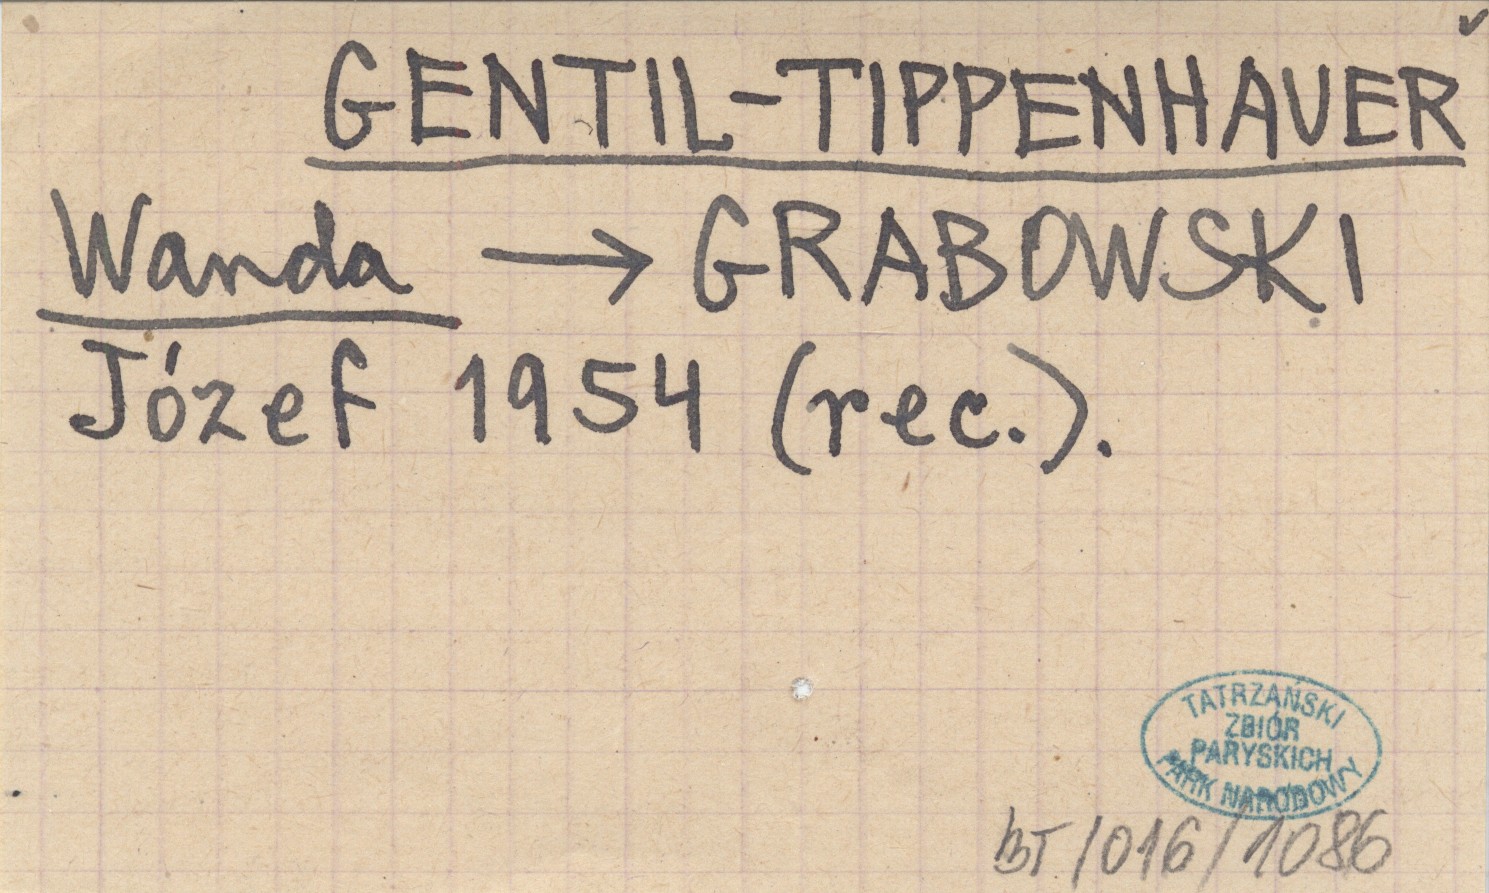 GENTIL-TIPPENHAUER
Wanda → GRABOWSKI
Józef 1954 (rec.).
TATRZAŃSKI
ZBIÓR
PARYSKICH
PARK NARODOWY
BT/016/1086